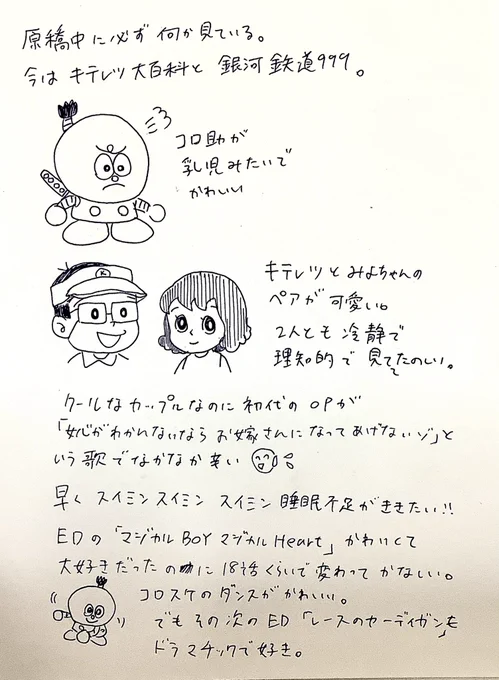 原稿中に必ず何か見ている。
今はキテレツ大百科と銀河鉄道999。
コロ助が
乳児みたいで
かわいい
キテレツとみよちゃんの
ペアが可愛い。
2人とも冷静で
理知的で見ててたのしい。
クールなカップルなのに初代のOPが
「女心がわかんないならお嫁さんになってあげないゾ」と
いう歌でなかなか辛い
早くスイミンスイミンスイミン睡眠不足がききたい!!
EDの「マジカルBOYマジカルHeart」かわいくて
大好きだったのに18話くらいで変わってかなしい。
コロスケのダンスがかわいい。
でもその次のED「レースのカーディガン」も
ドラマチックで好き。